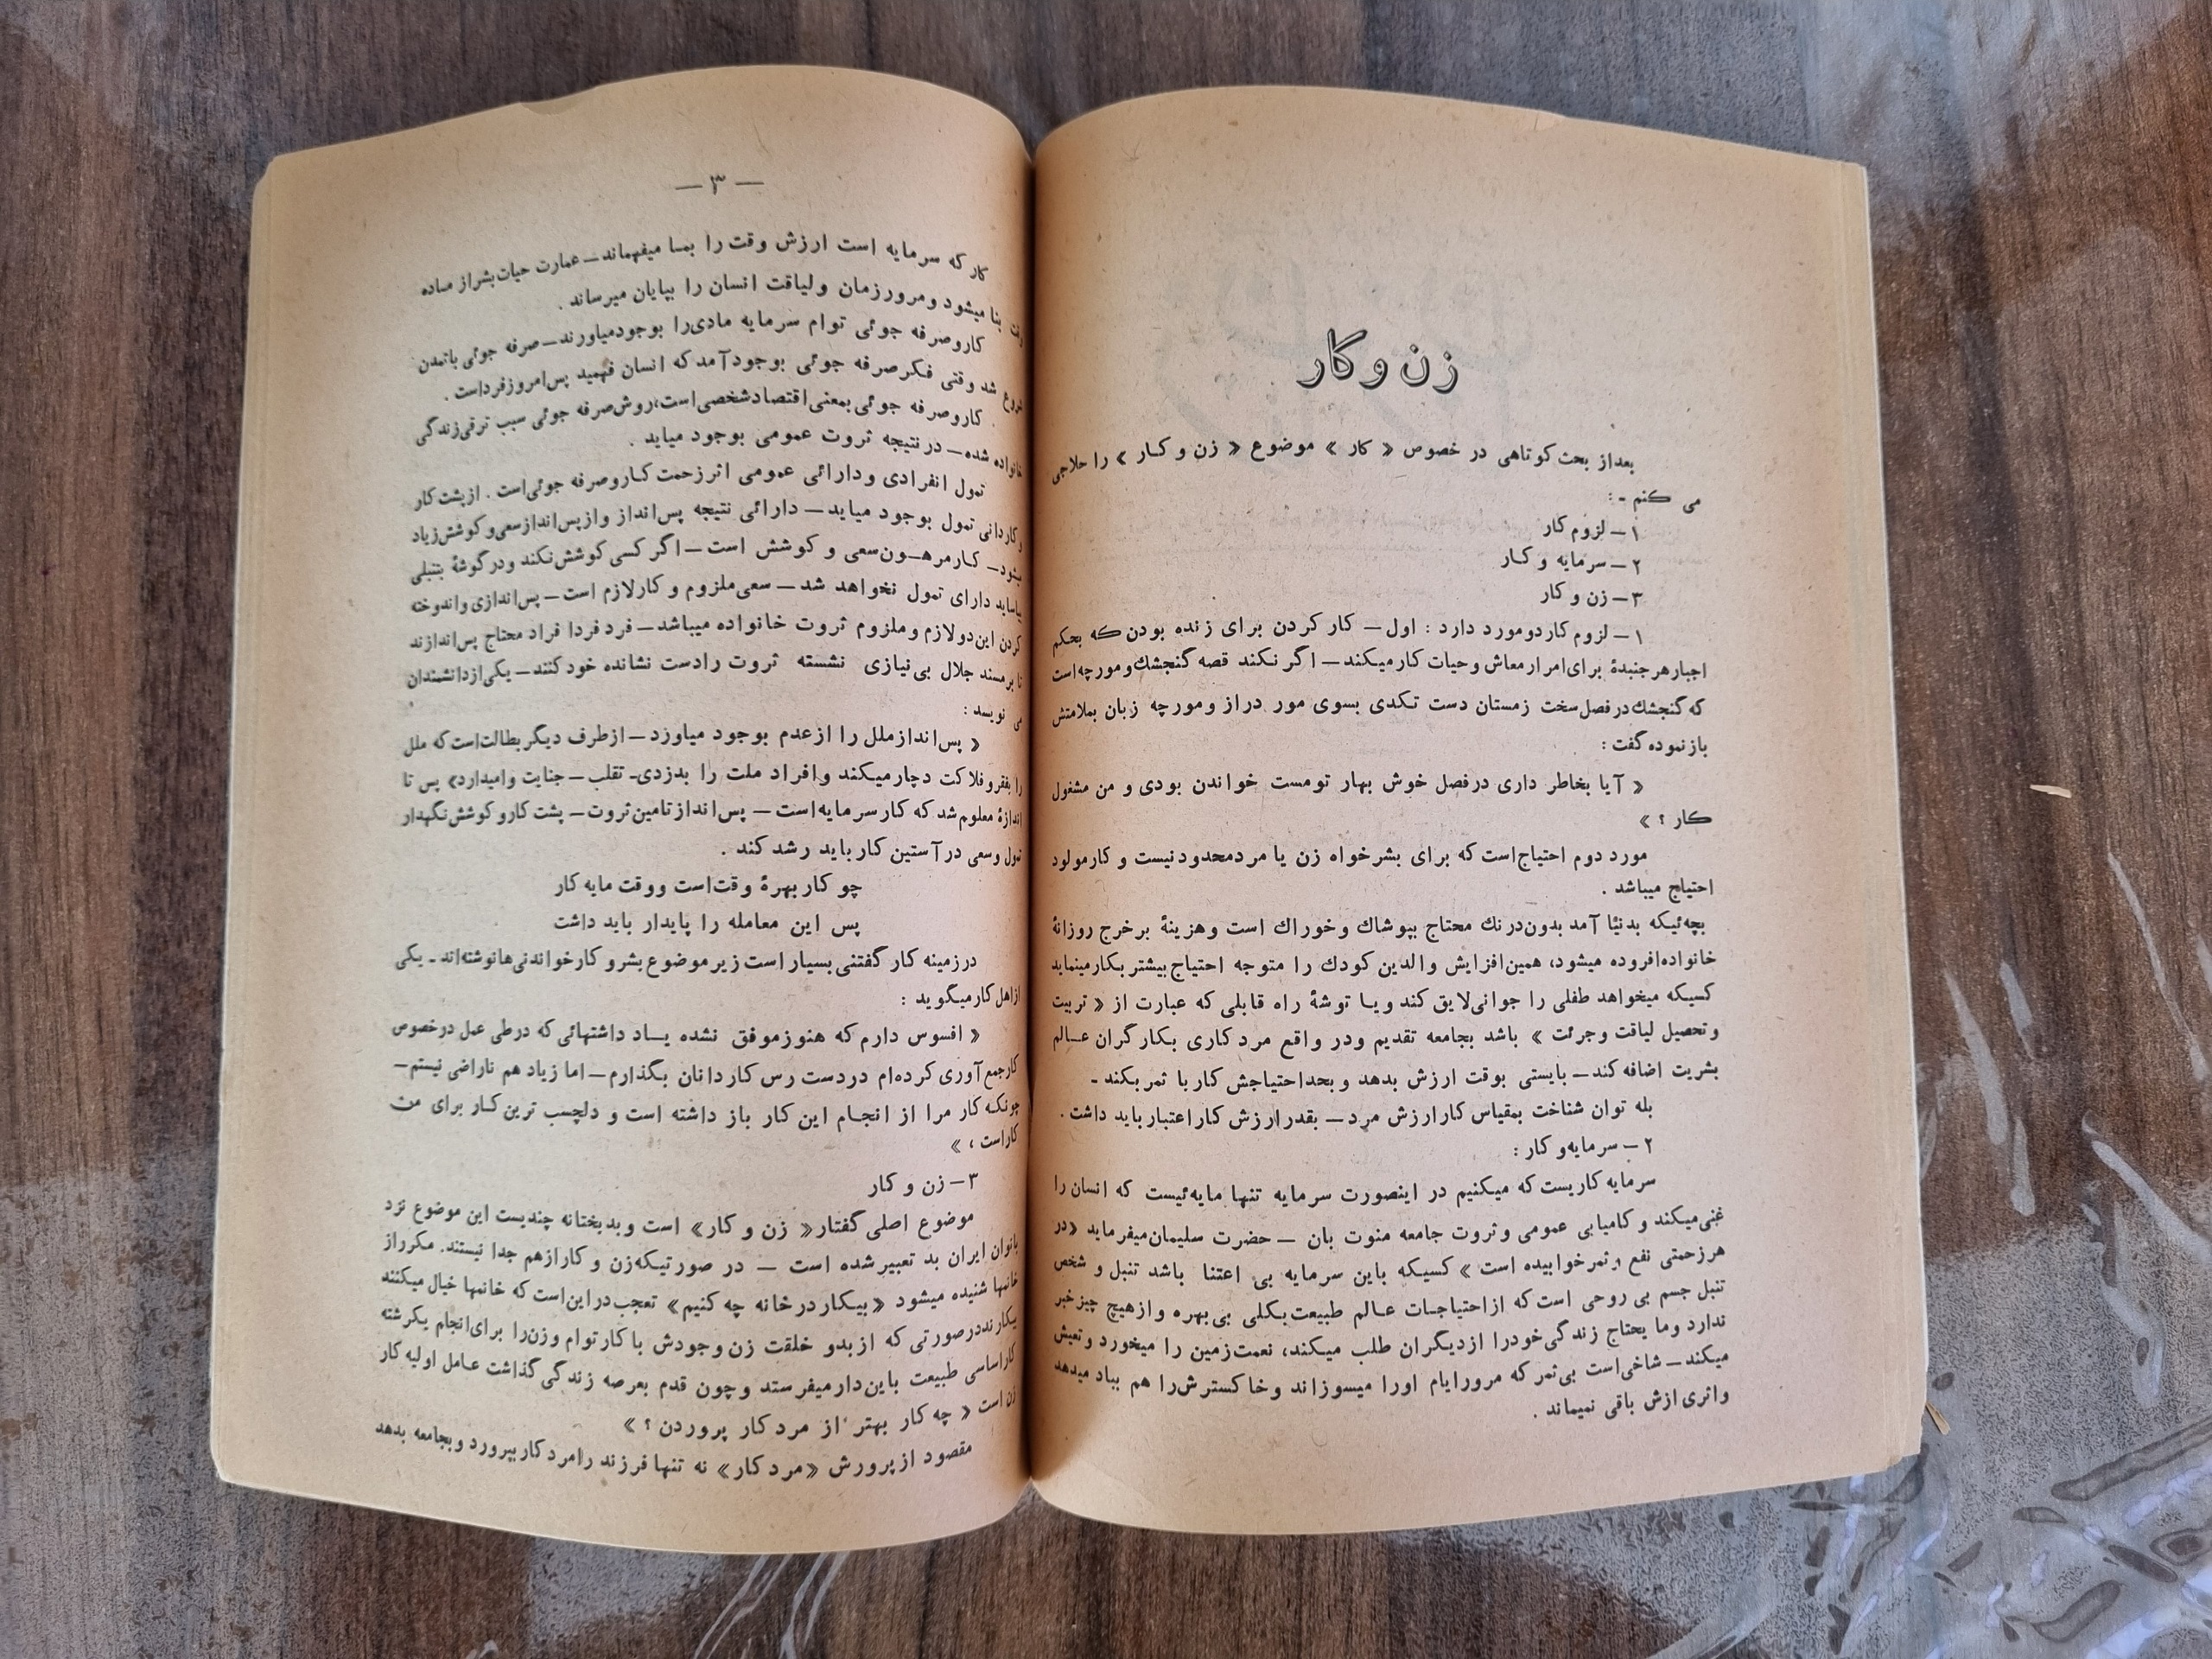 زن و کار
بعداز بحث کوتاهی در خصوص « کار » موضوع « زن و کـار » را حلاجی
می کنم ـ :
۱ – لزوم کار
۲ – سرمایه و کـار
۳ – زن و کار
۱ – لزوم کار دومورد دارد : اول – کار کردن برای زنده بودن که بحکم
اجبار هر جنبدهٔ برای امرار معاش و حیات کار میکند – اگر نکند قصه گنجشك و مورچه است
که گنجشك در فصل سخت زمستان دست تکدی بسوی مور دراز و مورچه زبان بملامتش
باز نموده گفت :
« آیا بخاطر داری در فصل خوش بهار تومست خواندن بودی و من مشغول
کار ؟ »
مورد دوم احتیاج است که برای بشر خواه زن یا مرد محدود نیست و کار مولود
احتیاج میباشد .
بچه ئیکه بدنیا آمد بدون درنك محتاج بپوشاك و خوراك است و هزینهٔ بر خرج روزانهٔ
خانواده افروده میشود، همین افزایش والدین کودك را متوجه احتیاج بیشتر بکار مینماید
کسیکه میخواهد طفلی را جوانی لایق کند ویـا توشهٔ راه قابلی که عبارت از « تربیت
و تحصیل لیاقت و جرئت » باشد بجامعه تقدیم ودر واقع مرد کاری بکارگران عـالم
بشریت اضافه کند – بایستی بوقت ارزش بدهد و بحد احتیاجش کار با ثمر بکند ـ
بله توان شناخت بمقیاس کار ارزش مرد – بقدر ارزش کار اعتبار باید داشت .
۲ – سرمایه و کار :
سرمایه کاریست که میکنیم در اینصورت سرمایه تنها مایه ئیست که انسان را
غنی میکند و کامیابی عمومی و ثروت جامعه منوت بان – حضرت سلیمان میفرماید «در
هر زحمتی نفع و ثمر خوابیده است » کسیکه باین سرمایه بی اعتنا باشد تنبل و شخص
تنبل جسم بی روحی است که از احتیاجـات عـالم طبیعت بکلی بی بهره و از هیچ چیز خبر
ندارد وما یحتاج زندگی خودرا از دیگران طلب میکند، نعمت زمین را میخورد و تعیش
میکند – شاخی است بی ثمر که مرور ایام اورا میسوزاند و خاکسترش را هم بباد میدهد
و اثری ازش باقی نمیماند .
– ۳ –
کار که سرمایه است ارزش وقت را بمـا میفهماند – عمارت حیات بشر از مـاده
بنا میشود و مرور زمان و لیاقت انسان را بپایان میرساند .
کار و صرفه جوئی توام سرمایه مادی را بوجود میاورند – صرفه جوئی باتمدن
شد وقتی فکر صرفه جوئی بوجود آمد که انسان فهمید پس امروز فرداست .
کار و صرفه جوئی بمعنی اقتصاد شخصی است، روش صرفه جوئی سبب ترقی زندگی
خانواده شده – در نتیجه ثروت عمومی بوجود میاید .
تمول انفرادی و دارائی عمومی اثر زحمت کـار و صرفه جوئی است . از پشت کار
و کاردانی تمول بوجود میاید – دارائی نتیجه پس انداز و از پس انداز سعی و کوشش زیاد
میشود – کـار مرهـون سعی و کوشش است – اگر کسی کوشش نکند و در گوشهٔ بتنبلی
بیاساید دارای تمول نخواهد شد – سعی ملزوم و کار لازم است – پس اندازی و اندوخته
کردن این دو لازم و ملزوم ثروت خانواده میباشد – فرد فرد افراد محتاج پس اندازند
تا بر مسند جلال بی نیازی نشسته ثروت را دست نشانده خود کنند – یکی از دانشمندان
می نویسد :
« پس انداز ملل را از عدم بوجود میاورد – از طرف دیگر بطالت است که ملل
را بفقر و فلاکت دچار میکند و افراد ملت را بدزدی ـ تقلب – جنایت وامیدارد» پس تا
اندازهٔ معلوم شد که کار سرمایه است – پس انداز تامین ثروت – پشت کار و کوشش نگهدار
تمول وسعی در آستین کار باید رشد کند .
چو کار بهرهٔ وقت است و وقت مایه کار
پس این معامله را پایدار باید داشت
در زمینه کار گفتنی بسیار است زیر موضوع بشر و کار خواندنی ها نوشته اند ـ یکی
از اهل کار میگوید :
« افسوس دارم که هنوز موفق نشده یـاد داشتهائی که در طی عمل در خصوص
کار جمع آوری کرده ام در دست رس کاردانان بگذارم – اما زیاد هم ناراضی نیستم –
چونکه کار مرا از انجـام این کار باز داشته است و دلچسب ترین کـار برای من
کار است ، »
۳ – زن و کار
موضوع اصلی گفتار « زن و کار » است و بدبختانه چندیست این موضوع نزد
بانوان ایران بد تعبیر شده است – در صورتیکه زن و کار از هم جدا نیستند. مکرر از
خانمها شنیده میشود «بیکار در خانه چه کنیم» تعجب در این است که خانمها خیال میکنند
بیکارند در صورتی که از بدو خلقت زن وجودش با کار توام و زن را برای انجام یکرشته
کار اساسی طبیعت باین دار میفرستد و چون قدم بعرصه زندگی گذاشت عـامل اولیه کار
زن است « چه کار بهتر از مرد کار پروردن ؟ »
مقصود از پرورش «مرد کار» نه تنها فرزند را مرد کار بپرورد و بجامعه بدهد